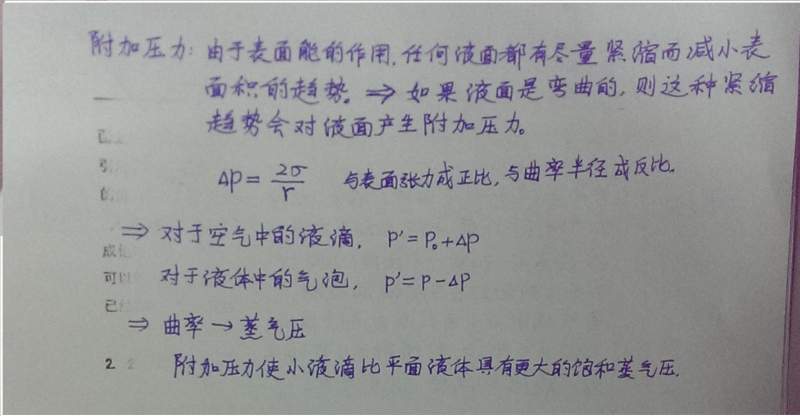 附加压力：由于表面能的作用，任何液面都有尽量紧缩而减小表
面积的趋势。⇒ 如果液面是弯曲的，则这种紧缩
趋势会对液面产生附加压力。
ΔP = 2σ/r 与表面张力成正比，与曲率半径成反比。
⇒ 对于空气中的液滴， P'=P₀+ΔP
对于液体中的气泡， P'=P-ΔP
⇒ 曲率 → 蒸气压
2 附加压力使小液滴比平面液体具有更大的饱和蒸气压.